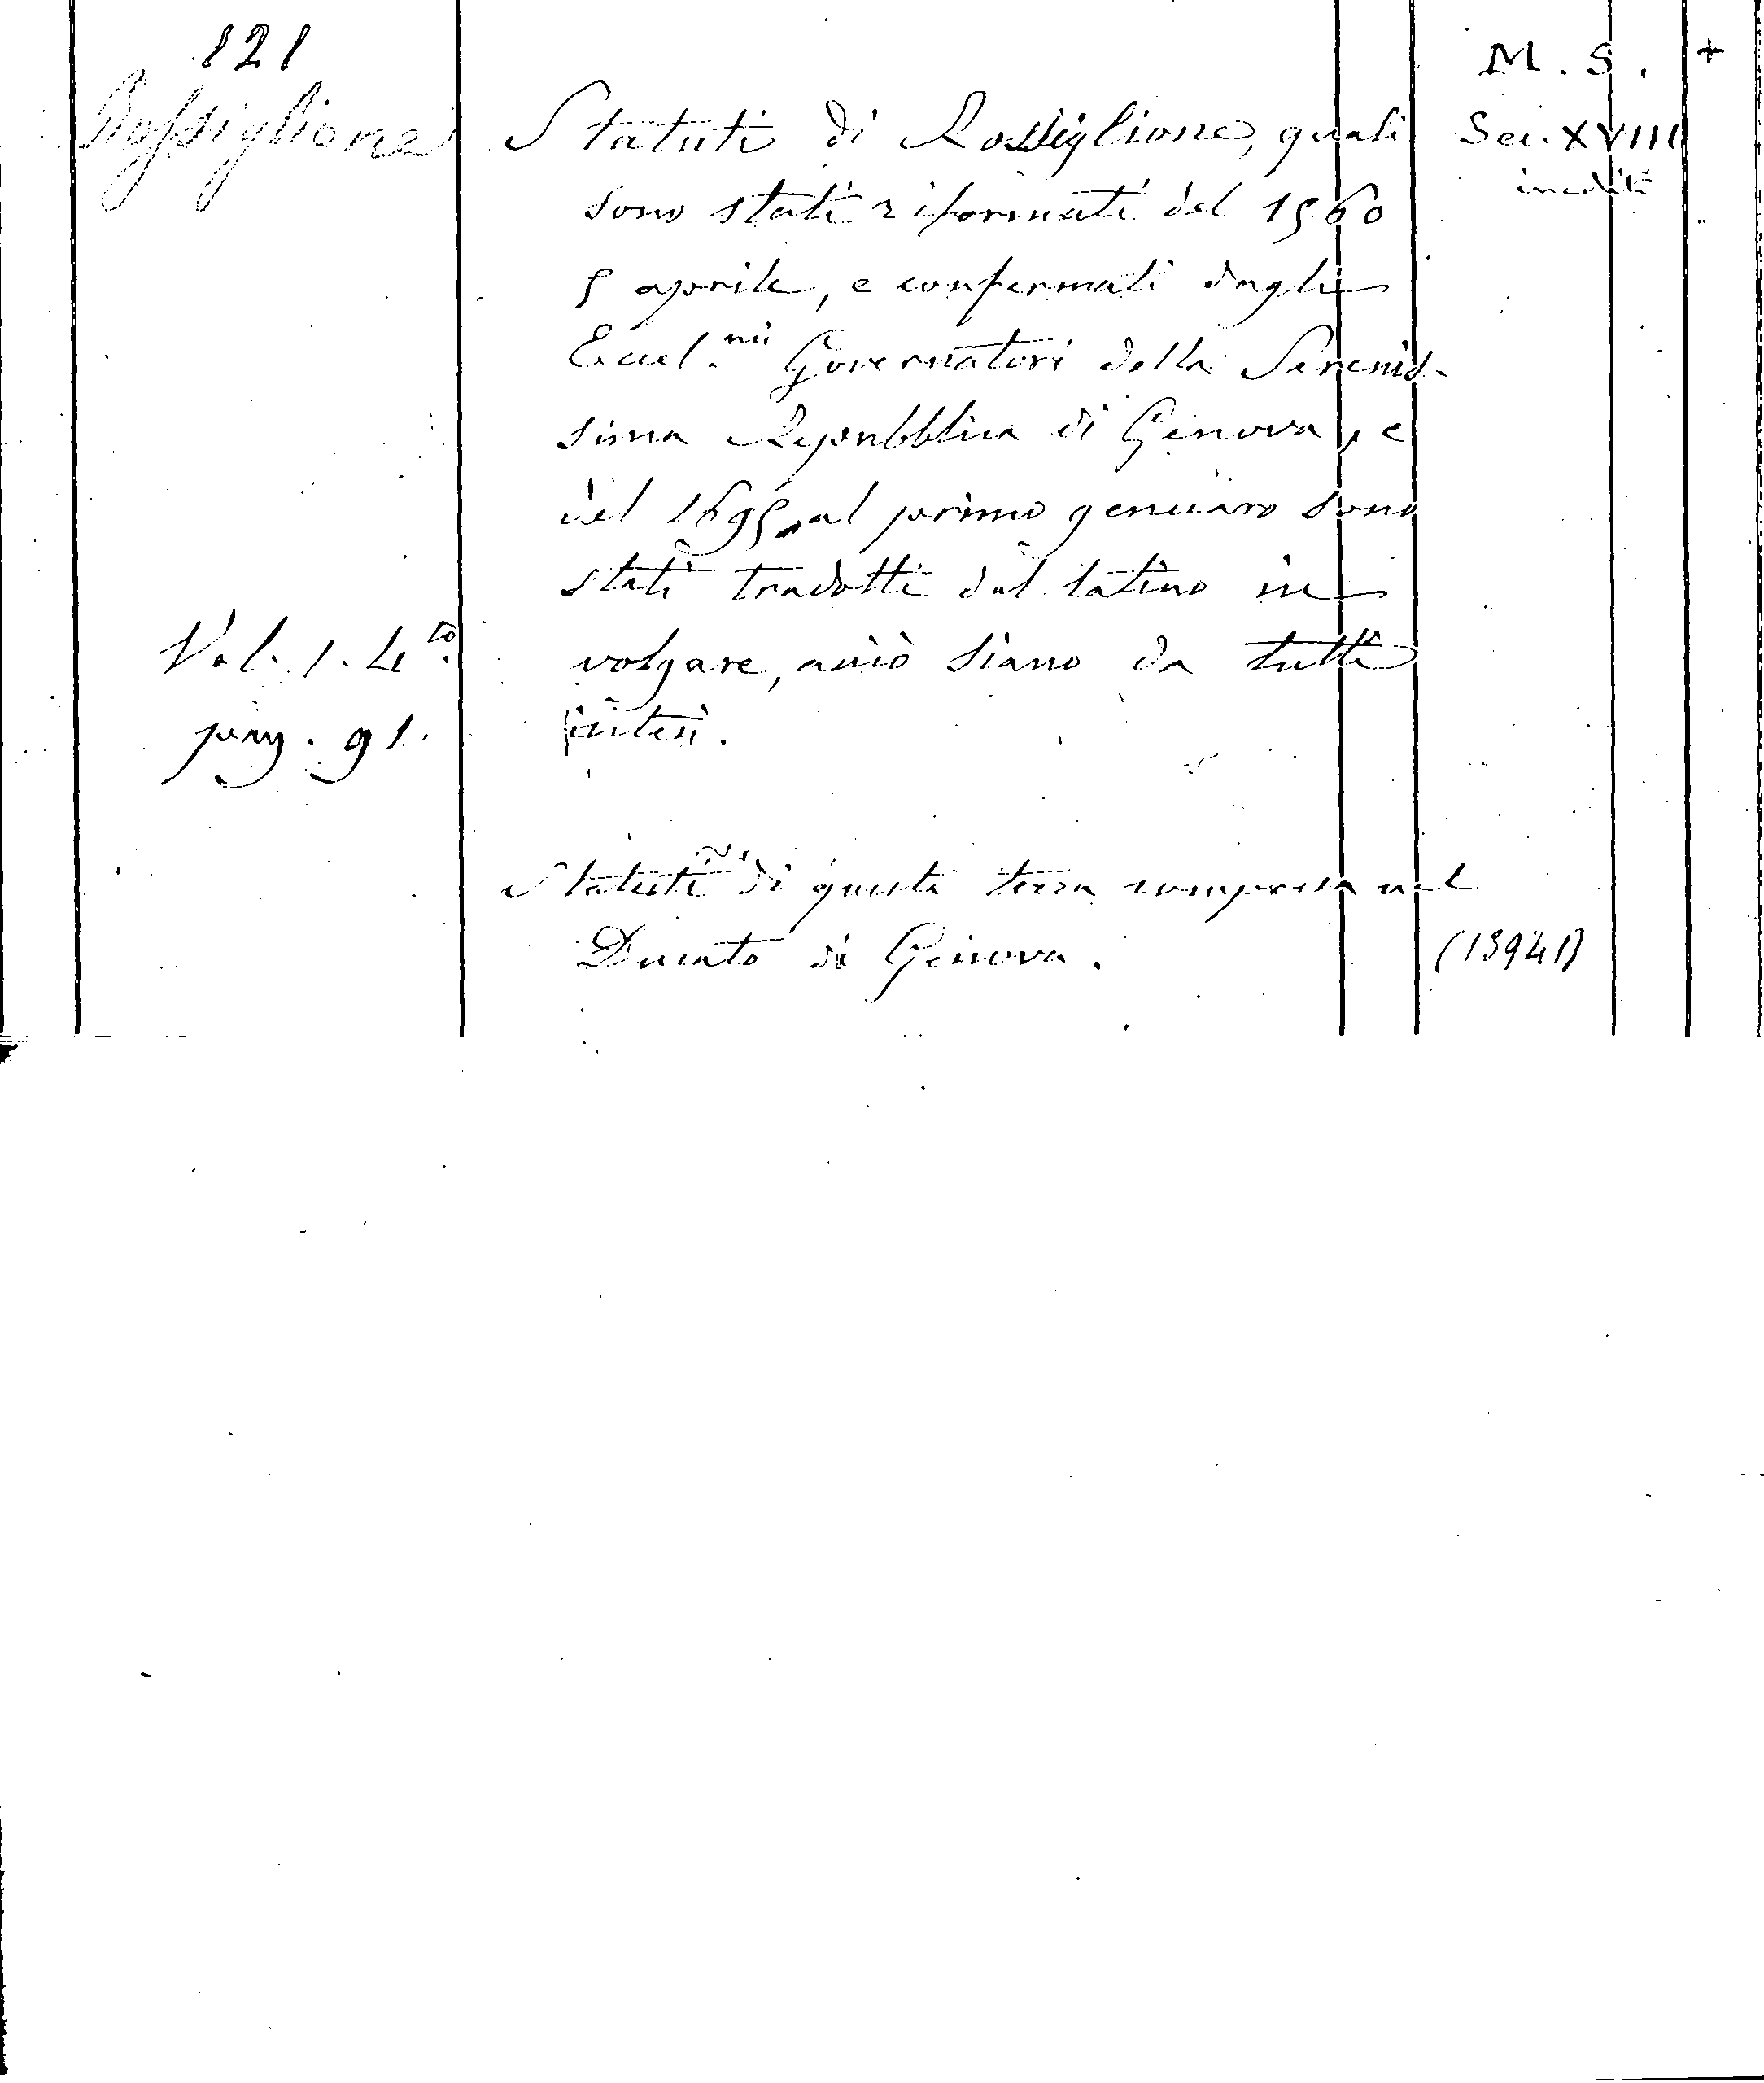 121
Rossiglione
Statuti di Rossiglione, quali
sono stati riformati del 1560
5 aprile, e confermati dagli
Eccel.mi Governatori della Serenis-
sima Repubblica di Genova, e
del 1695 al primo gennaro sono
stati tradotti dal latino in
volgare, acciò siano da tutti
intesi.
Vol. 1. 4to.
pag. 91.
Statuti di questa terra compresa nel
Ducato di Genova.
M. S. +
Sec. XVIII
inediti
(13941)